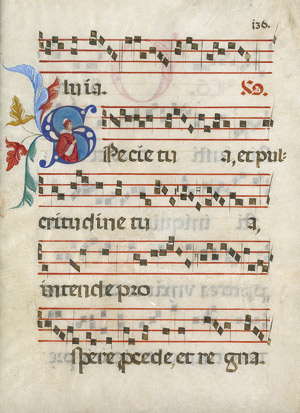 136.
luia. 
Specie tu a, et pul
critudine tu a,
intende pro
spere, p cede, et re gna.